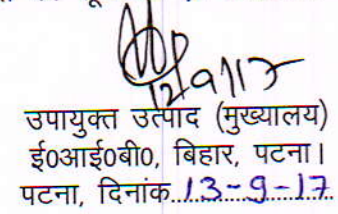 12/9/17
उपायुक्त उत्पाद (मुख्यालय)
ई०आई०बी०, बिहार, पटना।
पटना, दिनांक 13-9-17